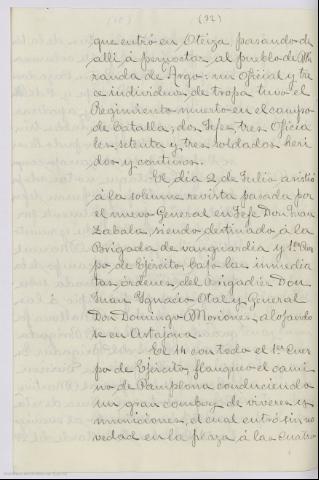 (32)
que entró en Oteiza, pasando de
alli á pernoctar al pueblo de Mi
randa de Arga: un Oficial y tre
ce individuos de tropa tuvo el
Regimiento muerto en el campo
de batalla; dos Jefes, tres Oficia
les, setenta y tres soldados heri
dos y contusos.
El dia 2 de Julio asistió
á la solemne revista pasada por
el nuevo General en Jefe Don Juan
Zabala, siendo destinado á la
Brigada de vanguardia y 1er Cuer
po de Ejército, bajo las inmedia
tas órdenes del Brigadier Don
Juan Ygnacio Otal y General
Don Domingo Moriones, alojando
se en Artajona.
El 14 con todo el 1er Cuer
po de Ejército, flanqueo el cami
no de Pamplona conduciendo
un gran comboy de viveres y
municiones, el cual entró sin no
vedad en la plaza á las cuatro